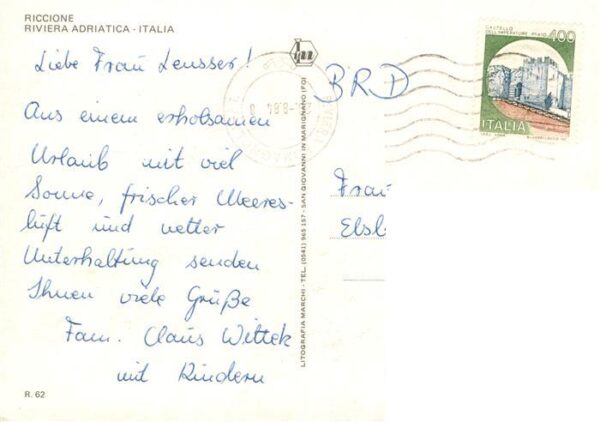 RICCIONE
RIVIERA ADRIATICA - ITALIA
Liebe Frau Leusser!
Aus einem erholsamen
Urlaub mit viel
Sonne, frischer Meeres-
luft und netter
Unterhaltung senden
Ihnen viele Grüße
Fam. Claus Wittek
mit Kindern
R. 62
LITOGRAFIA MARCHI - TEL. (0541) 965 157 - SAN GIOVANNI IN MARIGNANO (FO)
BRD
Frau
CASTELLO
DELL'IMPERATORE PRATO
400
ITALIA